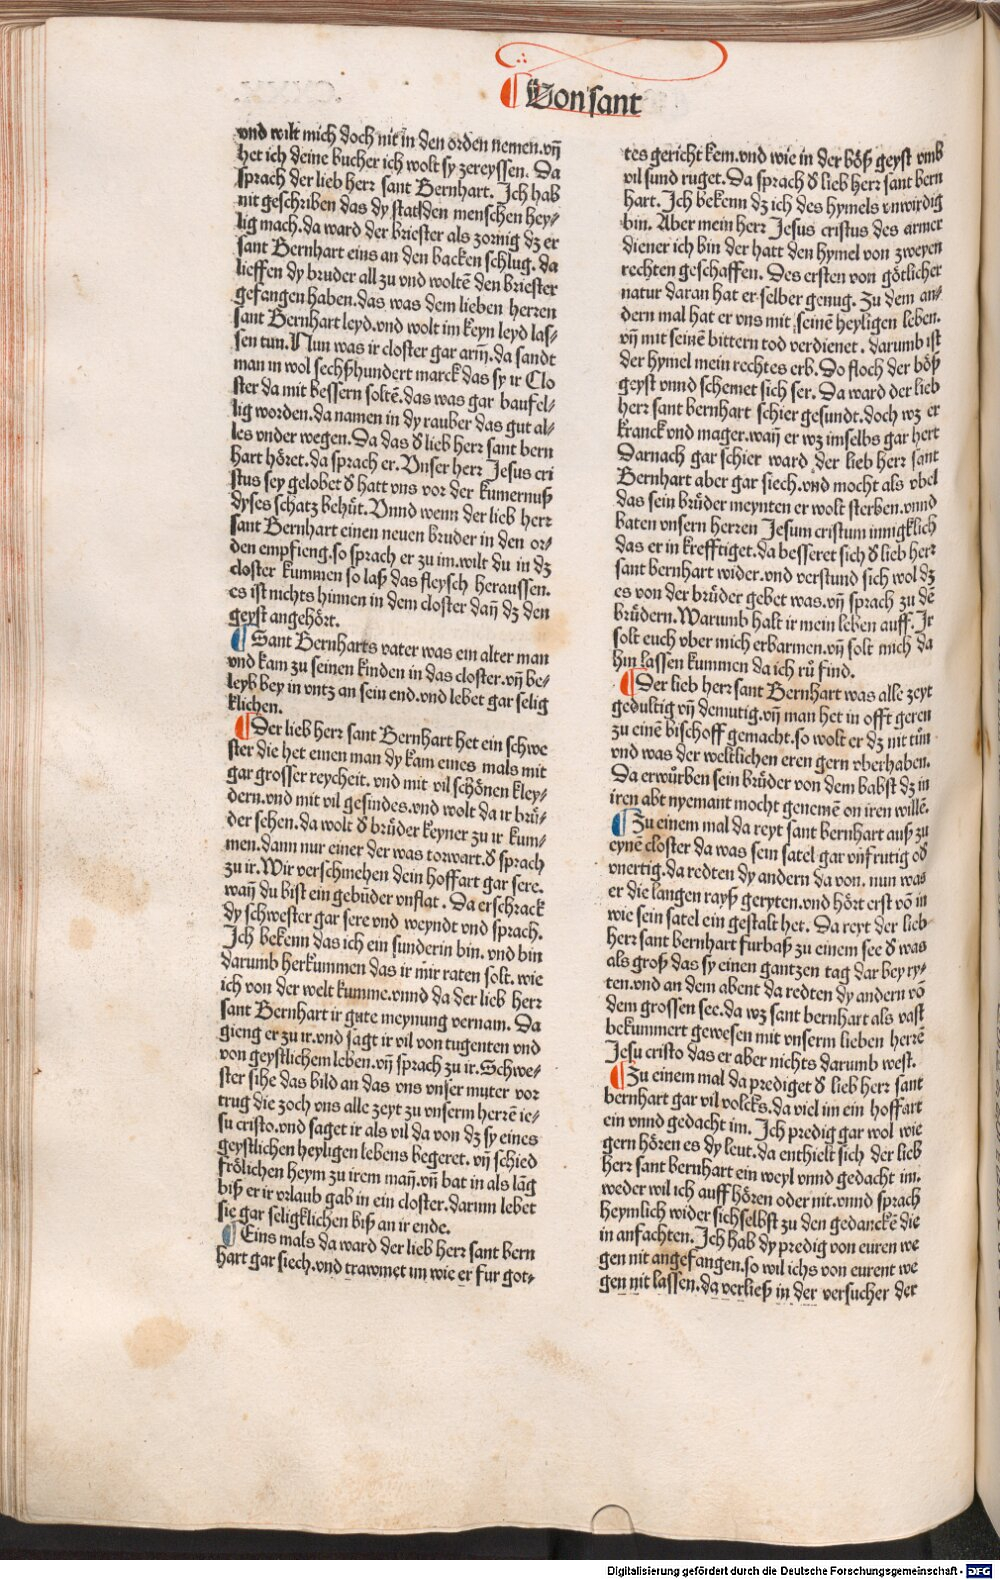 Von sant
vnd wilt mich doch nit in den orden nemen.vñ
het ich deine bucher ich wolt sy zereyssen. Da
sprach der lieb herr sant Bernhart. Ich hab
nit geschriben das dy statsden menschen hey⸗
lig mach.da ward der briester als zornig dz er
sant Bernhart eins an den backen schlug. da
lieffen dy bruder all zu vnd woltē den briester
gefangen haben.das was dem lieben herren
sant Bernhart leyd.vnd wolt im keyn leyd las⸗
sen tun. Nun was ir closter gar arm̄.da sandt
man in wol sechßhundert marck das sy ir Clo
ster da mit bessern soltē.das was gar baufel⸗
lig worden.da namen in dy rauber das gut al⸗
les vnder wegen. Da das d̕ lieb herr sant bern
hart höret.da sprach er. Vnser herr Jesus cri
stus sey gelobet d̕ hatt vns vor der kumernuß
dyses schatz behüt. Vnnd wenn der lieb herr
sant Bernhart einen neuen bruder in den or⸗
den empfieng.so sprach er zu im.wilt du in dz
closter kummen so laß das fleysch heraussen.
es ist nichts hinnen in dem closter dañ dz den
geyst angehört.
Sant Bernharts vater was ein alter man
vnd kam zu seinen kinden in das closter.vñ be⸗
leyb bey in vntz an sein end.vnd lebet gar selig
klichen.
Der lieb herr sant Bernhart het ein schwe
ster die het einen man dy kam eines mals mit
gar grosser reycheit. vnd mit vil schönen kley⸗
dern.vnd mit vil gesindes.vnd wolt da ir brů⸗
der sehen.da wolt d̕ brůder keyner zu ir kum⸗
men.dann nur einer der was torwart.d̕ sprach
zu ir. Wir verschmehen dein hoffart gar sere.
wañ du bist ein gebůnder vnflat. Da erschrack
dy schwester gar sere vnd weyndt vnd sprach.
Ich bekenn das ich ein sunderin bin. vnd bin
darumb herkummen das ir mir raten solt. wie
ich von der welt kumme.vnnd da der lieb herr
sant Bernhart ir gute meynung vernam. Da
gieng er zu ir.vnd sagt ir vil von tugenten vnd
von geystlichem leben.vñ sprach zu ir. Schwe⸗
ster sihe das bild an das vns vnser muter vor
trug die zoch vns alle zeyt zu vnserm herrē ie⸗
su cristo.vnd saget ir als vil da von dz sy eines
geystlichen heyligen lebens begeret. vñ schied
frölichen heym zu irem mañ.vñ bat in als lāg
biß er ir vrlaub gab in ein closter.darinn lebet
sie gar seligklichen biß an ir ende.
Eins mals da ward der lieb herr sant bern
hart gar siech.vnd trawmet im wie er fur got⸗
tes gericht kem.vnd wie in der böß geyst vmb
vil sund ruget. Da sprach d̕ lieb herr sant bern
hart. Ich bekenn dz ich des hymels vnwirdig
bin. Aber mein herr Jesus cristus des armer
diener ich bin der hatt den hymel von zweyen
rechten geschaffen. Des ersten von götlicher
natur daran hat er selber genug. Zu dem an⸗
dern mal hat er vns mit seinē heyligen leben.
vñ mit seinē bittern tod verdienet. darumb ist
der hymel mein rechtes erb. Do floch der böß
geyst vnnd schemet sich ser. Da ward der lieb
herr sant bernhart schier gesundt.doch wz er
kranck vnd mager.wañ er wz imselbs gar hert
Darnach gar schier ward der lieb herr sant
Bernhart aber gar siech.vnd mocht als vbel
das sein brůder meynten er wolt sterben.vnnd
baten vnsern herren Jesum cristum innigklich
das er in krefftiget.da besseret sich d̕ lieb herr
sant bernhart wider.vnd verstund sich wol dz
es von der brůder gebet was.vñ sprach zu dē
brůdern. Warumb halt ir mein leben auff. Ir
solt euch vber mich erbarmen.vñ solt mich da
hin lassen kummen da ich rů find.
Der lieb herr sant Bernhart was alle zeyt
gedultig vñ demutig.vñ man het in offt geren
zu einē bischoff gemacht.so wolt er dz nit tůn
vnd was der weltlichen eren gern vberhaben.
Da erwůrben sein brůder von dem babst dz in
iren abt nyemant mocht genemē on iren willē.
Zu einem mal da reyt sant bernhart auß zu
eynē closter da was sein satel gar vnfrutig od̕
vnertig.da redten dy andern da von. nun was
er die langen rayß geryten.vnd hört erst vō in
wie sein satel ein gestalt het. Da reyt der lieb
herr sant bernhart furbaß zu einem see d̕ was
als groß das sy einen gantzen tag dar bey ry⸗
ten.vnd an dem abent da redten dy andern vō
dem grossen see.da wz sant bernhart als vast
bekummert gewesen mit vnserm lieben herrē
Jesu cristo das er aber nichts darumb west.
Zu einem mal da prediget d̕ lieb herr sant
bernhart gar vil volcks.da viel im ein hoffart
ein vnnd gedacht im. Ich predig gar wol wie
gern hören es dy leut.da enthielt sich der lieb
herr sant bernhart ein weyl vnnd gedacht im.
weder wil ich auff hören oder nit.vnnd sprach
heymlich wider sich selbst zu den gedanckē die
in anfachten. Ich hab dy predig von euren we
gen nit angefangen.so wil ichs von eurent we
gen nit lassen.da verließ in der versucher der
Digitalisierung gefördert durch die Deutsche Forschungsgemeinschaft - DFG